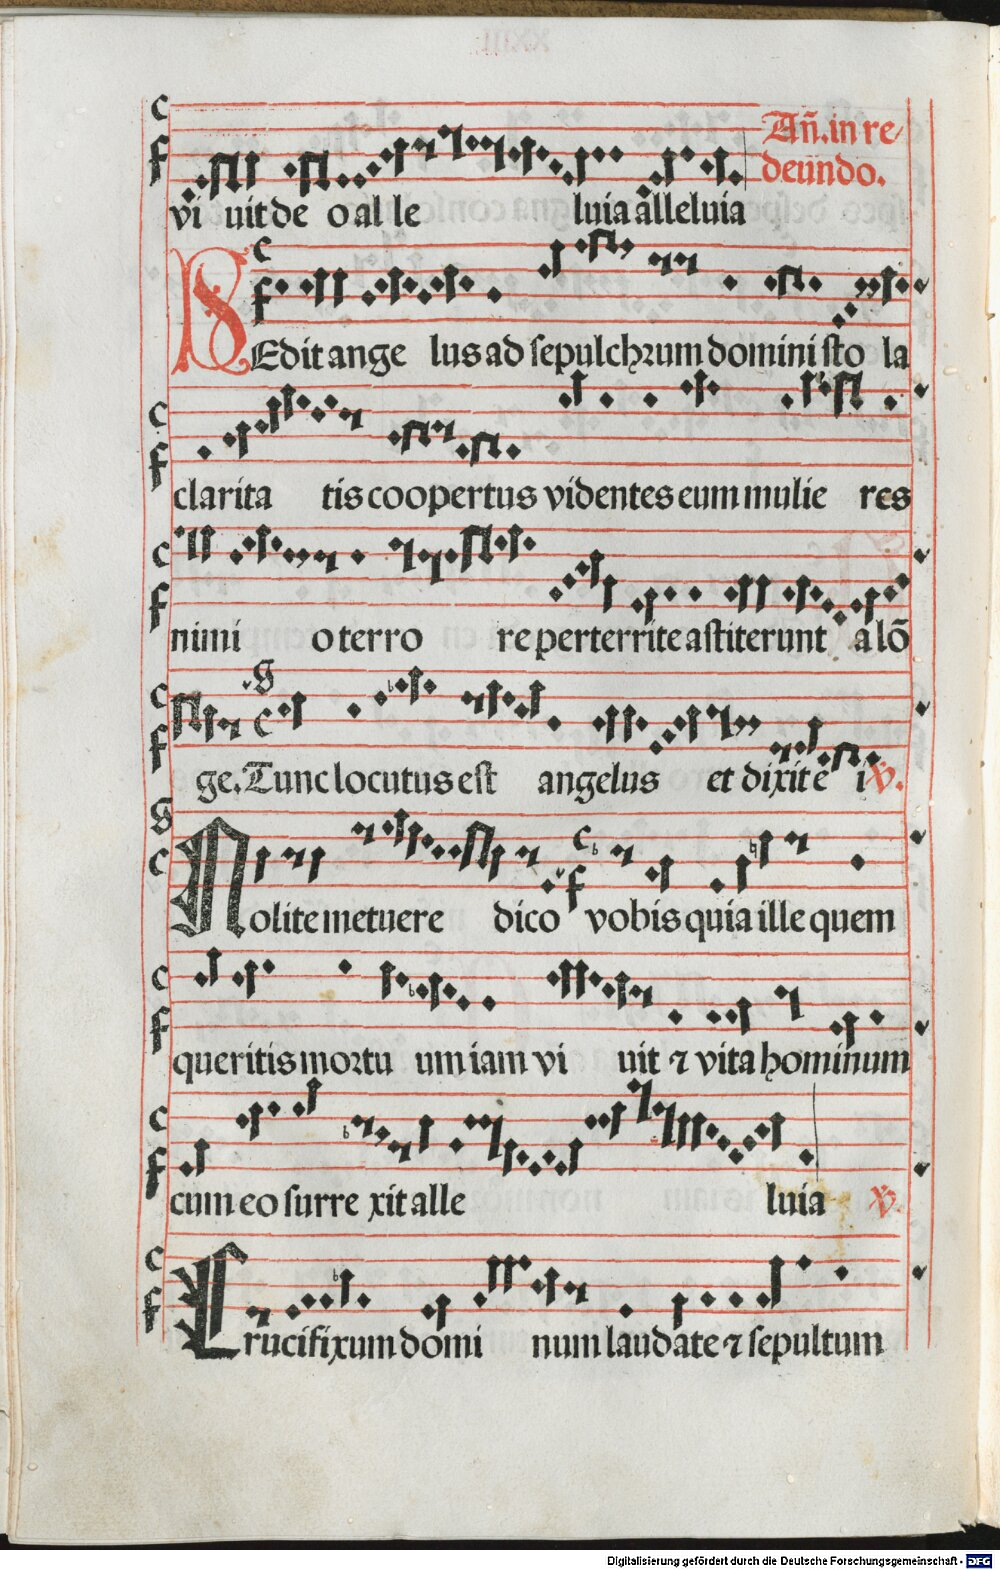 Añ. in re-
deūndo.
vi uit de o al le luia alleluia
SEdit ange lus ad sepulchrum domini sto la
clarita tis coopertus videntes eum mulie res
nimi o terro re perterrite astiterunt a lō
ge. Tunc locutus est angelus et dixit e i ꝟ.
Nolite metuere dico vobis quia ille quem
queritis mortu um iam vi uit ⁊ vita hominum
cum eo surre xit alle luia ꝟ.
Crucifixum domi num laudate ⁊ sepultum
Digitalisierung gefördert durch die Deutsche Forschungsgemeinschaft - DFG